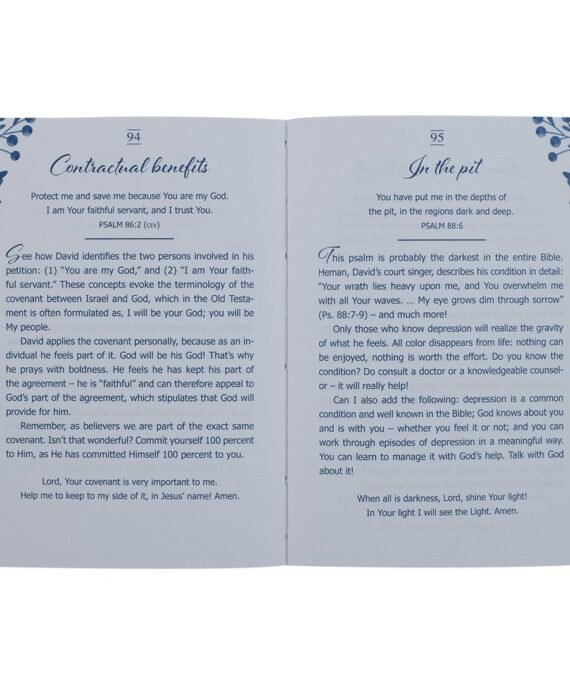 94
Contractual benefits
Protect me and save me because You are my God.
I am Your faithful servant, and I trust You.
PSALM 86:2 (CEV)
See how David identifies the two persons involved in his
petition: (1) “You are my God,” and (2) “I am Your faith-
ful servant.” These concepts evoke the terminology of the
covenant between Israel and God, which in the Old Testa-
ment is often formulated as, I will be your God; you will be
My people.
David applies the covenant personally, because as an in-
dividual he feels part of it. God will be his God! That’s why
he prays with boldness. He feels he has kept his part of
the agreement – he is “faithful” and can therefore appeal to
God’s part of the agreement, which stipulates that God will
provide for him.
Remember, as believers we are part of the exact same
covenant. Isn’t that wonderful? Commit yourself 100 percent
to Him, as He has committed Himself 100 percent to you.
Lord, Your covenant is very important to me.
Help me to keep to my side of it, in Jesus’ name! Amen.
95
In the pit
You have put me in the depths of
the pit, in the regions dark and deep.
PSALM 88:6
This psalm is probably the darkest in the entire Bible.
Heman, David’s court singer, describes his condition in detail:
“Your wrath lies heavy upon me, and You overwhelm me
with all Your waves. ... My eye grows dim through sorrow”
(Ps. 88:7-9) – and much more!
Only those who know depression will realize the gravity
of what he feels. All color disappears from life: nothing can
be enjoyed, nothing is worth the effort. Do you know the
condition? Do consult a doctor or a knowledgeable counsel-
or – it will really help!
Can I also add the following: depression is a common
condition and well known in the Bible; God knows about you
and is with you – whether you feel it or not; and you can
work through episodes of depression in a meaningful way.
You can learn to manage it with God’s help. Talk with God
about it!
When all is darkness, Lord, shine Your light!
In Your light I will see the Light. Amen.